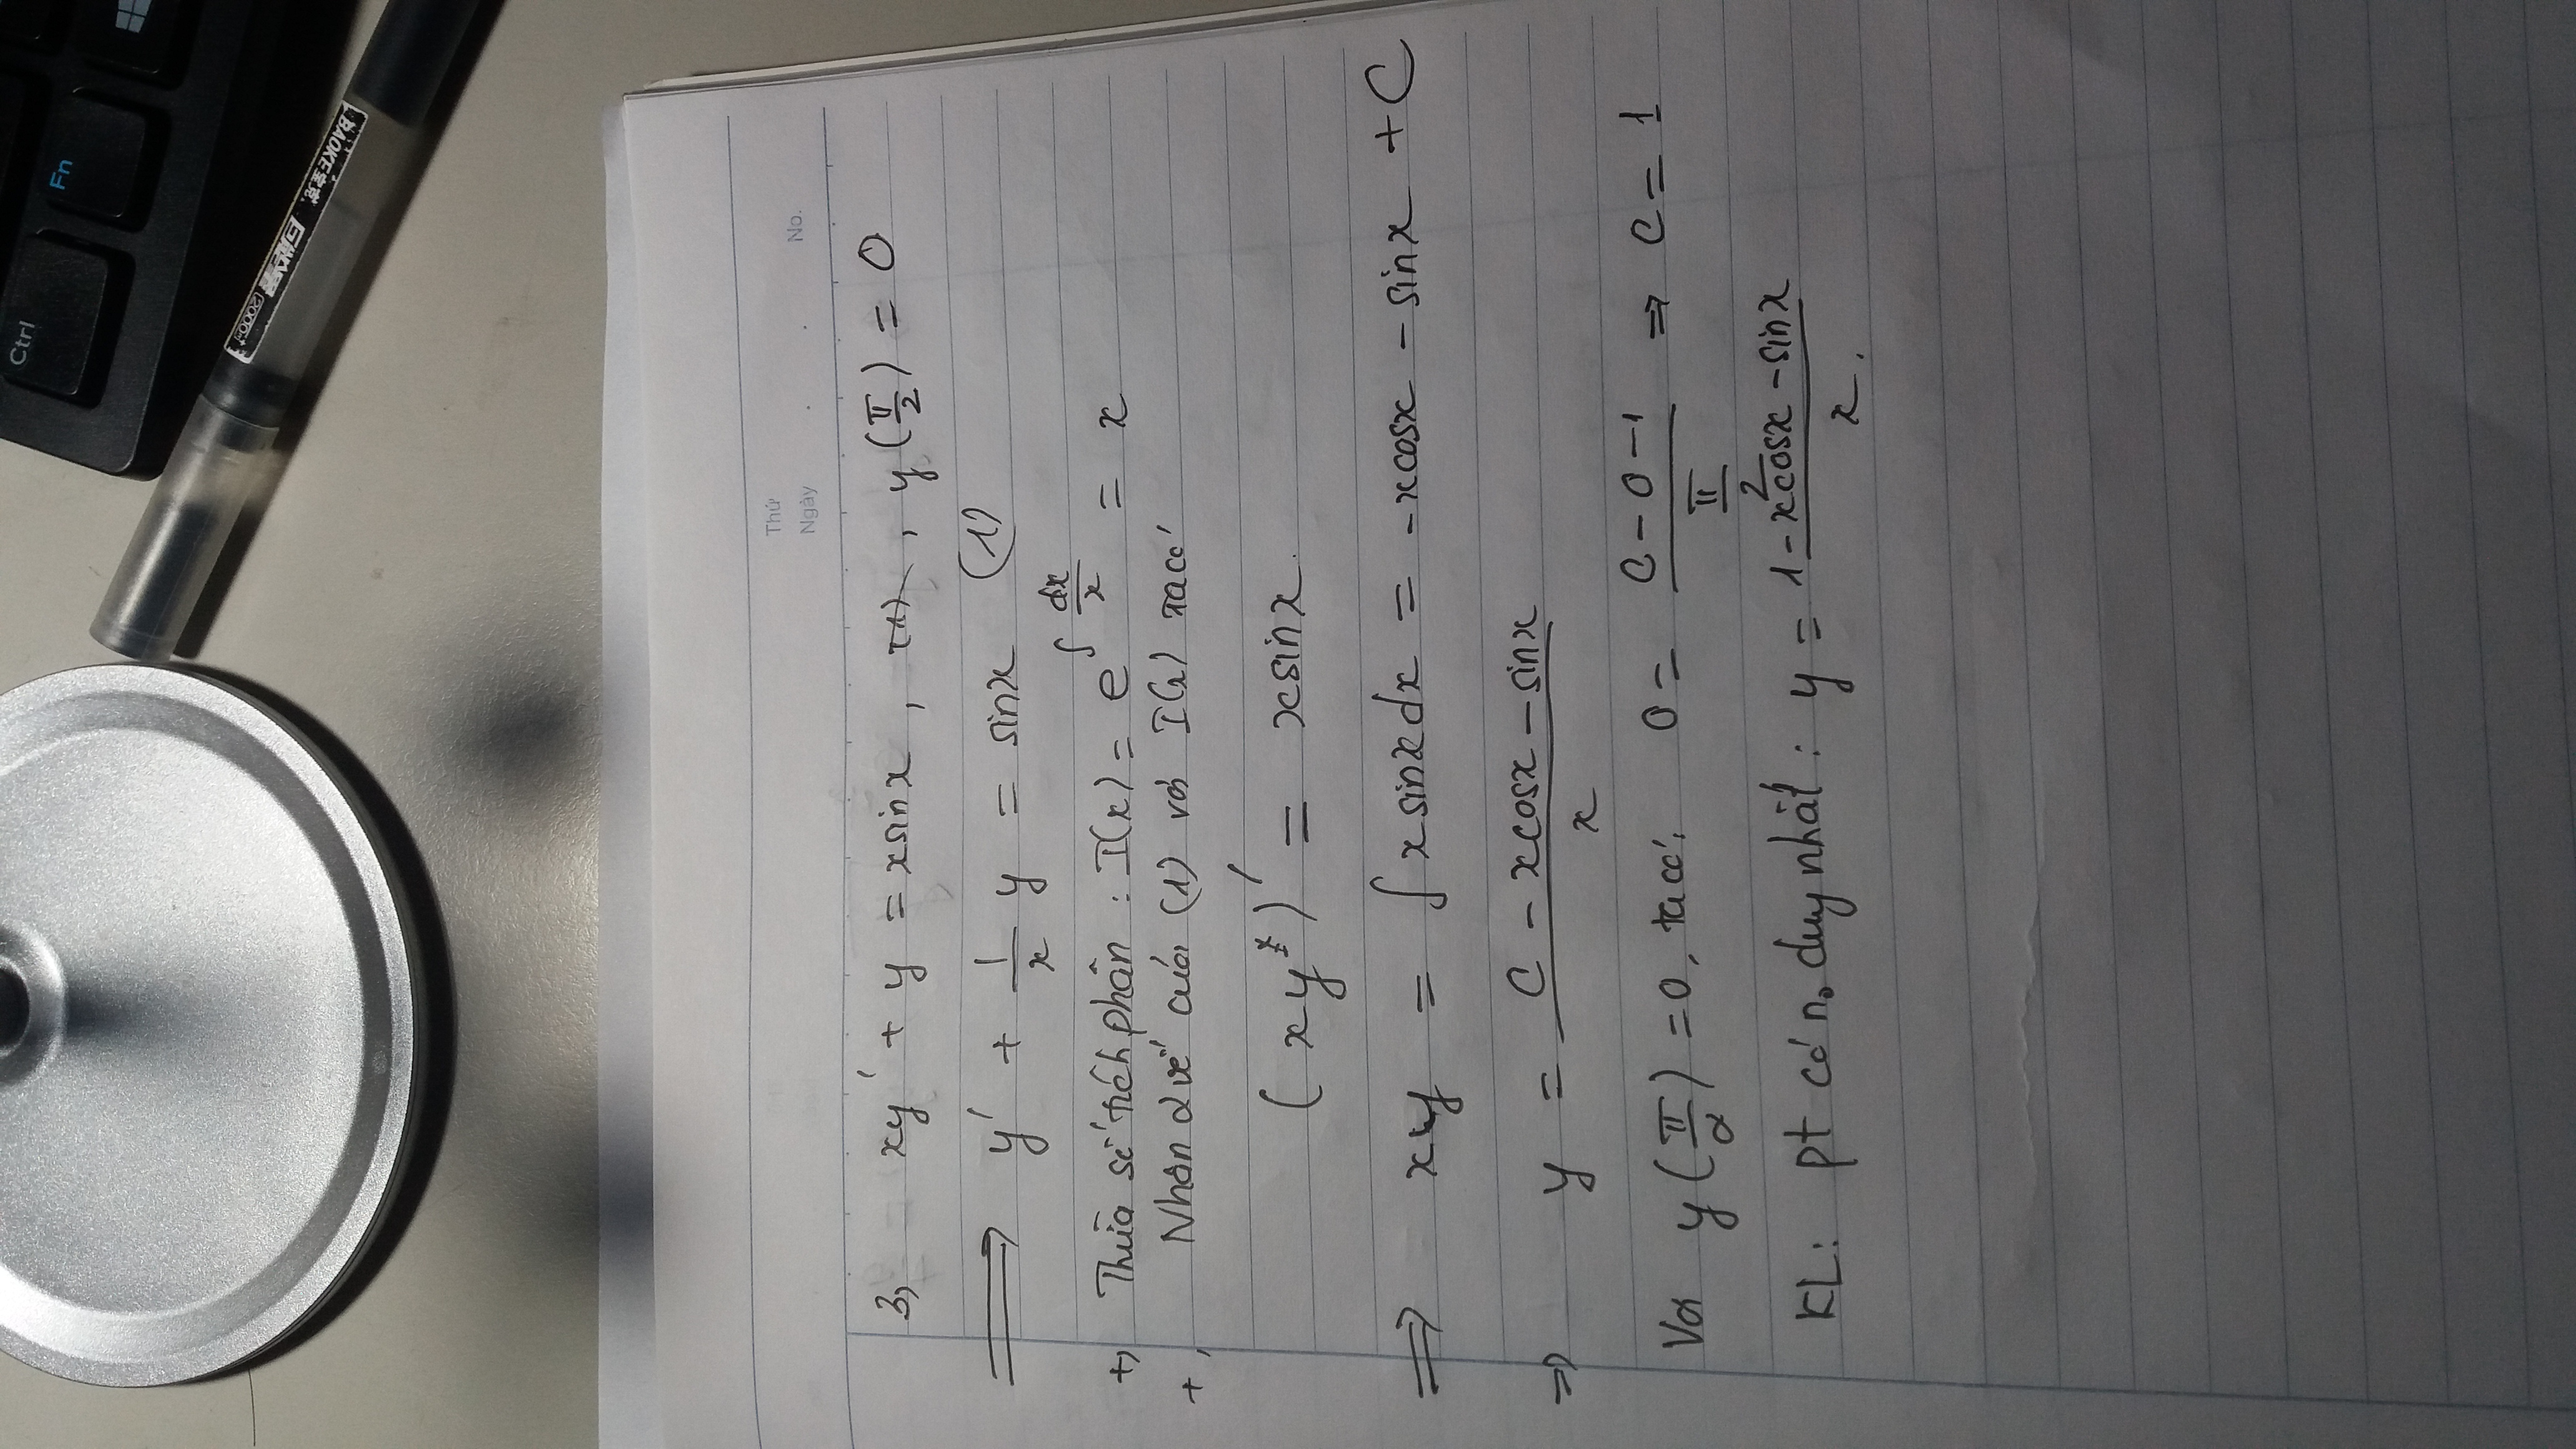 Ctrl
Fn
2000m
BAOKE宝克
Thứ
Ngày
No.
3, xy' + y = xsinx , (1) , y(π/2) = 0
⟹ y' + 1/x y = sinx (1)
+, Thừa số tích phân : I(x) = e^∫dx/x = x
+, Nhân 2 vế của (1) với I(x) ta có
(xy)' = xsinx.
⟹ xy = ∫xsinxdx = -xcosx - sinx + C
⇒ y = (C - xcosx - sinx)/x
Với y(π/2) = 0, ta có: 0 = (C - 0 - 1)/(π/2) ⇒ C = 1
KL: pt có n₀ duy nhất : y = (1 - xcosx - sinx)/x.